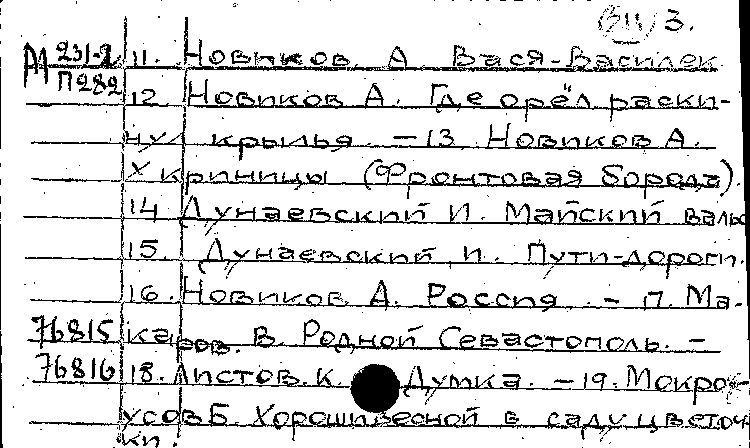 (BII) 3.
М 231-2 11. Новиков А Вася-Василек
П282 12 Новиков А. Где орёл раски-
нул крылья. – 13 Новиков А.
У криницы. (Фронтовая борода).
14 Дунаевский И. Майский вальс
15. Дунаевский И. Пути-дороги.
16. Новиков А. Россия. – 17. Ма-
76815 каров. В. Родной Севастополь. –
76816 18. Листов. К. Думка. – 19. Мокро-
усов Б. Хороши весной в саду цветоч
ки.